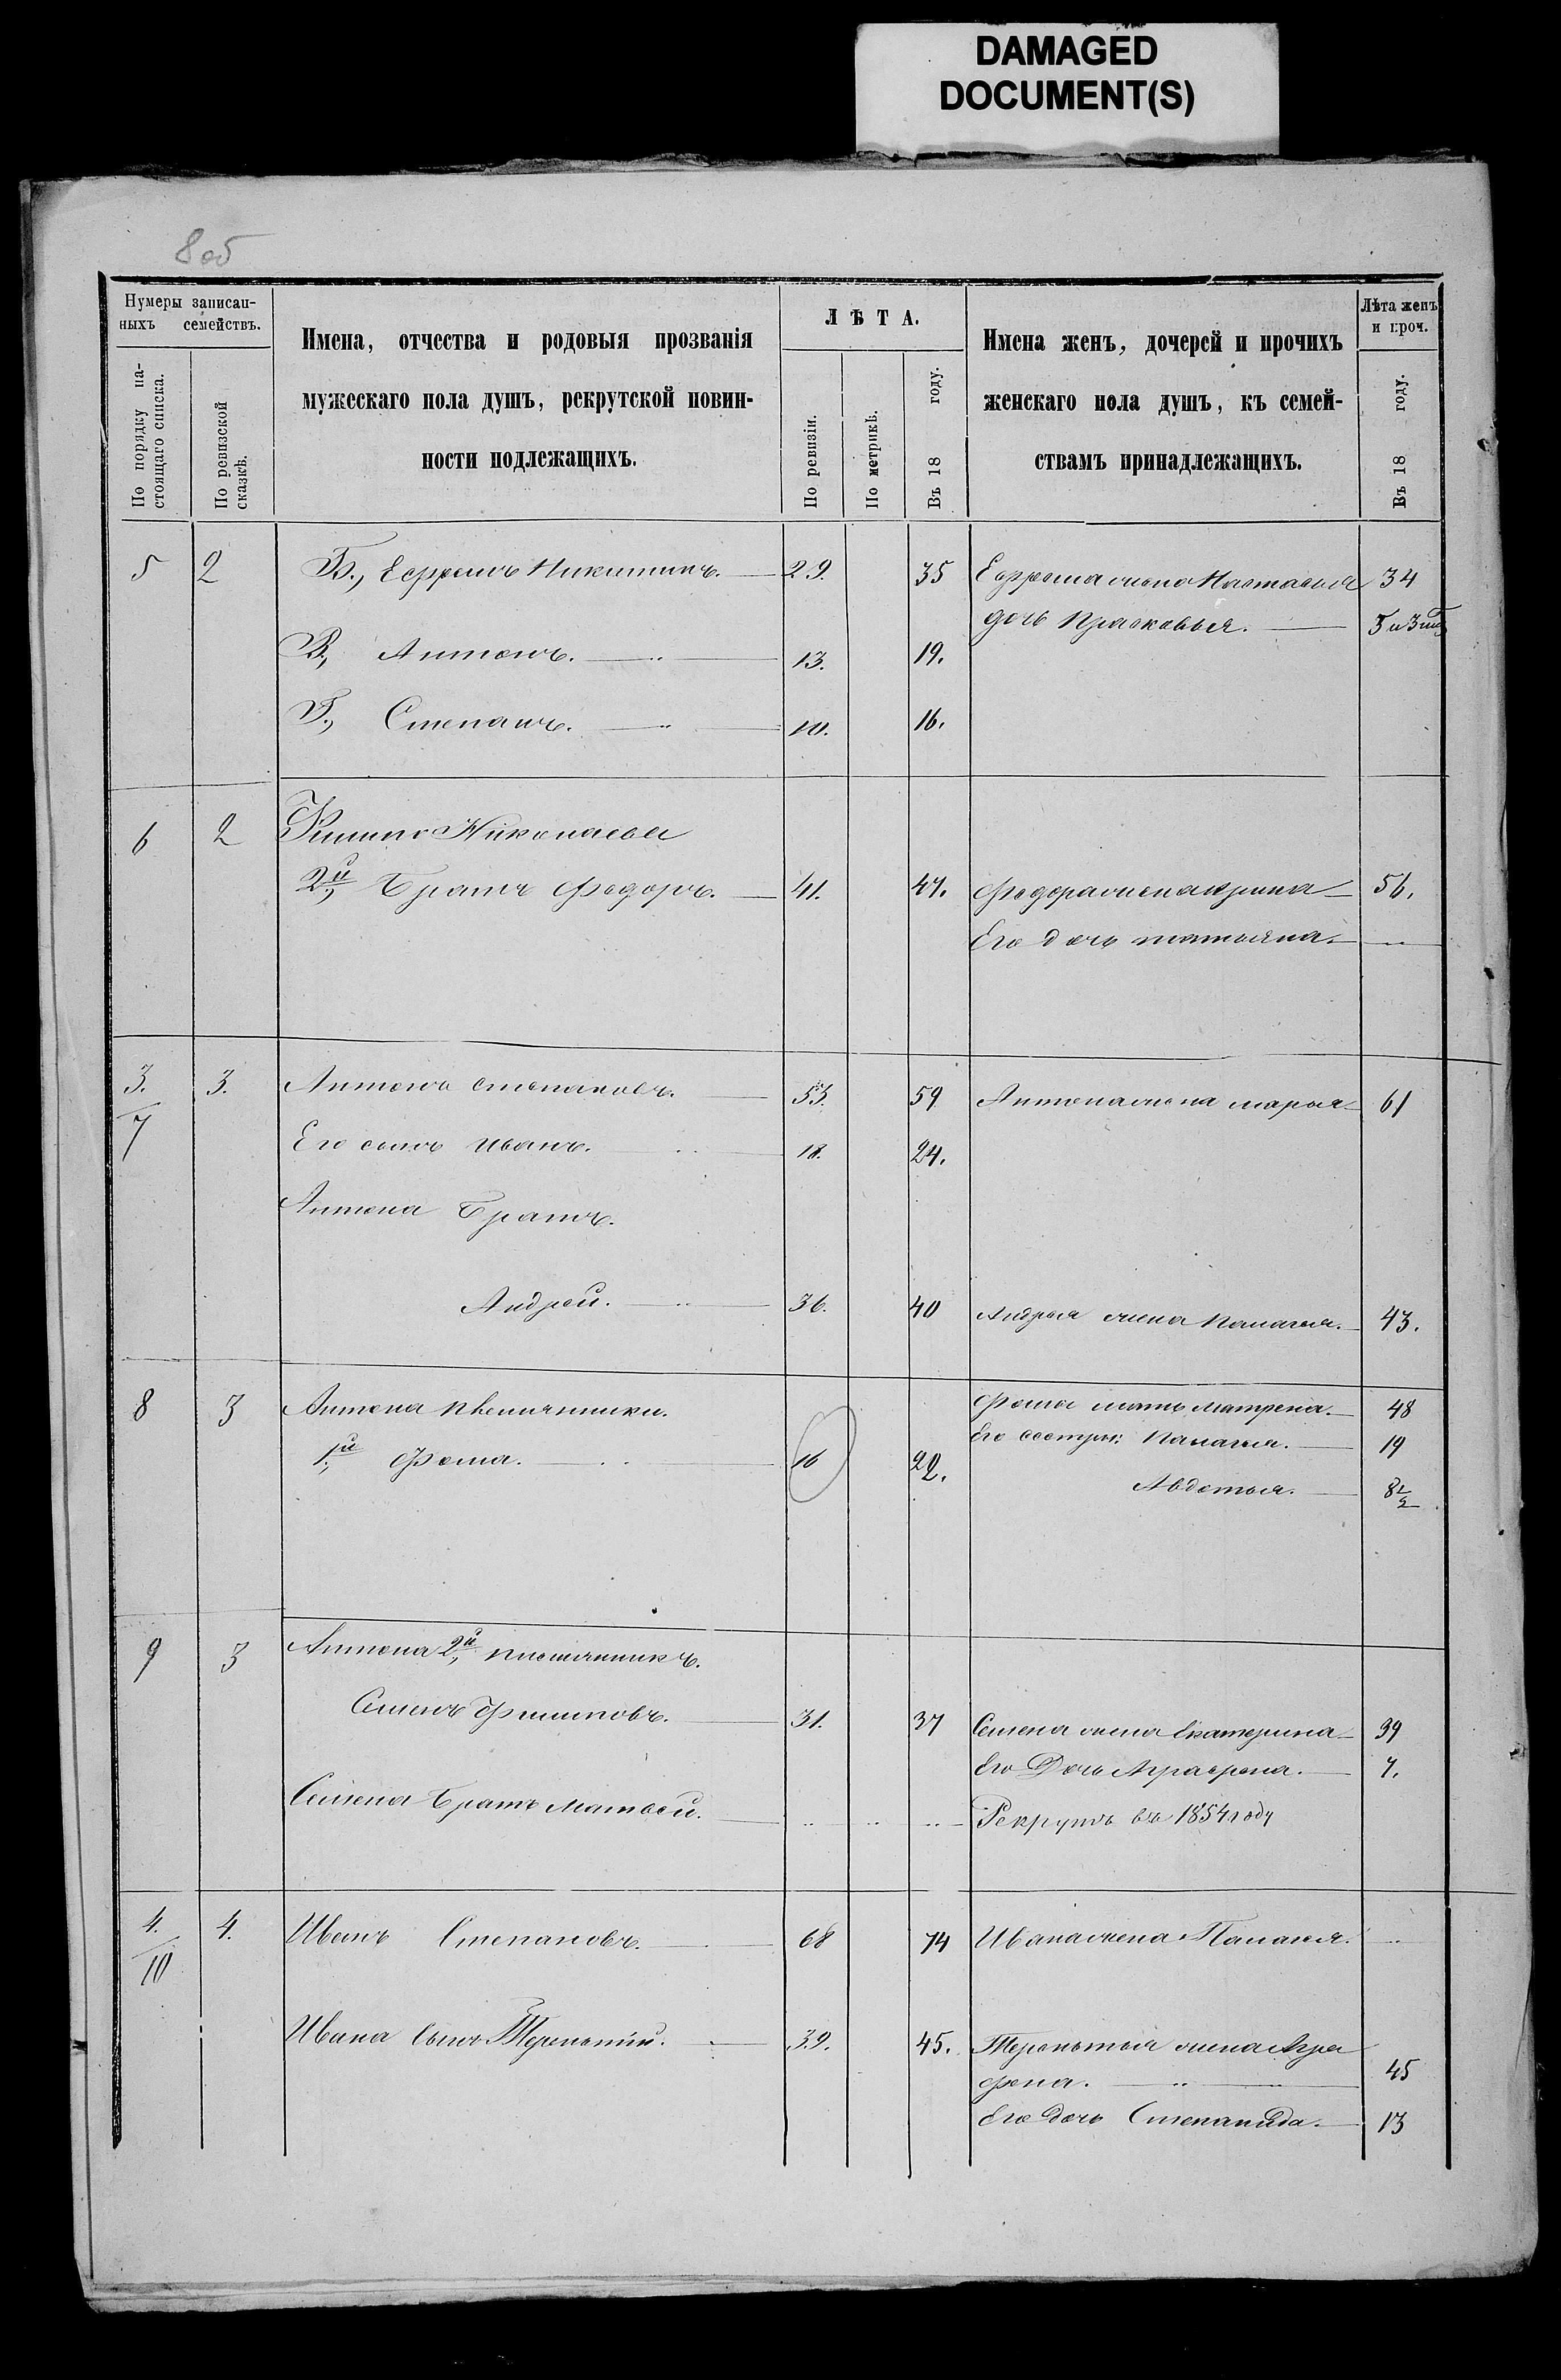 DAMAGED
DOCUMENT(S)
8 об
Нумеры записан-
ныхъ семействъ.
По порядку на-
стоящаго списка.
По ревизской
сказкѣ.
Имена, отчества и родовыя прозванія
мужескаго пола душъ, рекрутской повин-
ности подлежащихъ.
ЛѢТА.
По ревизіи.
По метрикѣ.
Въ 18 году.
Имена женъ, дочерей и прочихъ
женскаго пола душъ, къ семей-
ствамъ принадлежащихъ.
Лѣта женъ
и проч.
Въ 18 году.
5 2 Б., Ефремъ Никитинъ. 29. 35 Ефрема жена Настасья 34
дочь Прасковья. 5 и 3
В., Антонъ. 13. 19.
Г., Степанъ. 10. 16.
6 2 Николаева
2й, Братъ Федоръ. 41. 47. Федора жена Ирина 56.
Его дочь татьяна
3. 3. Антонъ степановъ. 53. 59 Антона жена марья 61
7 Его сынъ Иванъ. 18. 24.
Антона Братъ.
Андрей. 36. 40 Андрея жена Палагея. 43.
8 3 Антона племянники. Фома мать Матрена. 48
1й, Фома. 16 22. Его сестры: Палагея. 19
Авдотья. 8 1/2
9 3 Антона 2й, племянникъ.
Семенъ Филиповъ. 31. 37 Семена жена Екатерина 39
Его Дочь Аграфена. 7.
Семена Братъ Матвей. Рекрутъ въ 1854 году
4. 4. Иванъ Степановъ. 68 74 Ивана жена Палагея.
10
Ивана Сынъ Терентій. 39. 45. Терентья жена Агра
фена. 45
Его дочь Степанида. 13